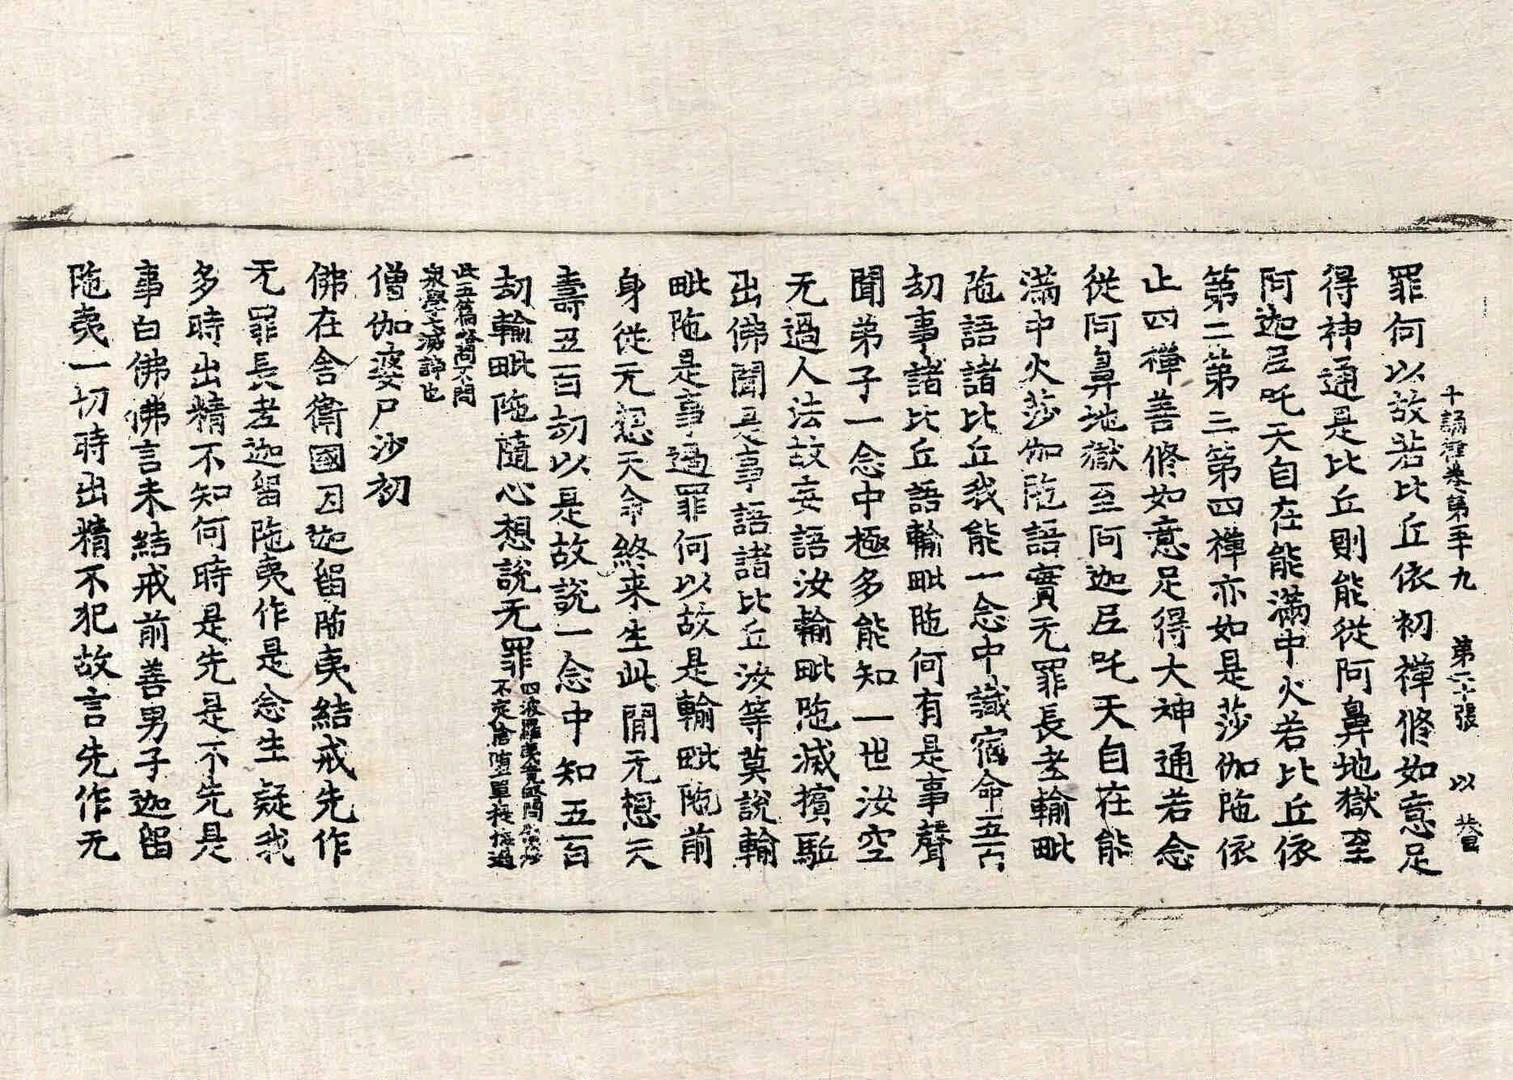 十誦律卷第五十九 第二十張 以
罪何以故若比丘依初禪脩如意足
得神通是比丘則能從阿鼻地獄至
阿迦尼吒天自在能滿中火若比丘依
第二第三第四禪亦如是莎伽陁依
止四禪善脩如意足得大神通若念
從阿鼻地獄至阿迦尼吒天自在能
滿中火莎伽陁語實无罪長老輸毗
陁語諸比丘我能一念中識宿命五百
劫事諸比丘語輸毗陁何有是事聲
聞弟子一念中極多能知一世汝空
无過人法故妄語汝輸毗陁滅擯駈
出佛聞是事語諸比丘汝等莫說輸
毗陁是事過罪何以故是輸毗陁前
身從无想天命終来生此間无想天
壽五百劫以是故說一念中知五百
劫輸毗陁隨心想說无罪四波羅夷竟
此五篇略問不問
衆學七滅諍也
僧伽婆尸沙初
佛在舍衛國因迦留陁夷結戒先作
无罪長老迦留陁夷作是念生疑我
多時出精不知何時是先是不先是
事白佛佛言未結戒前善男子迦留
陁夷一切時出精不犯故言先作无